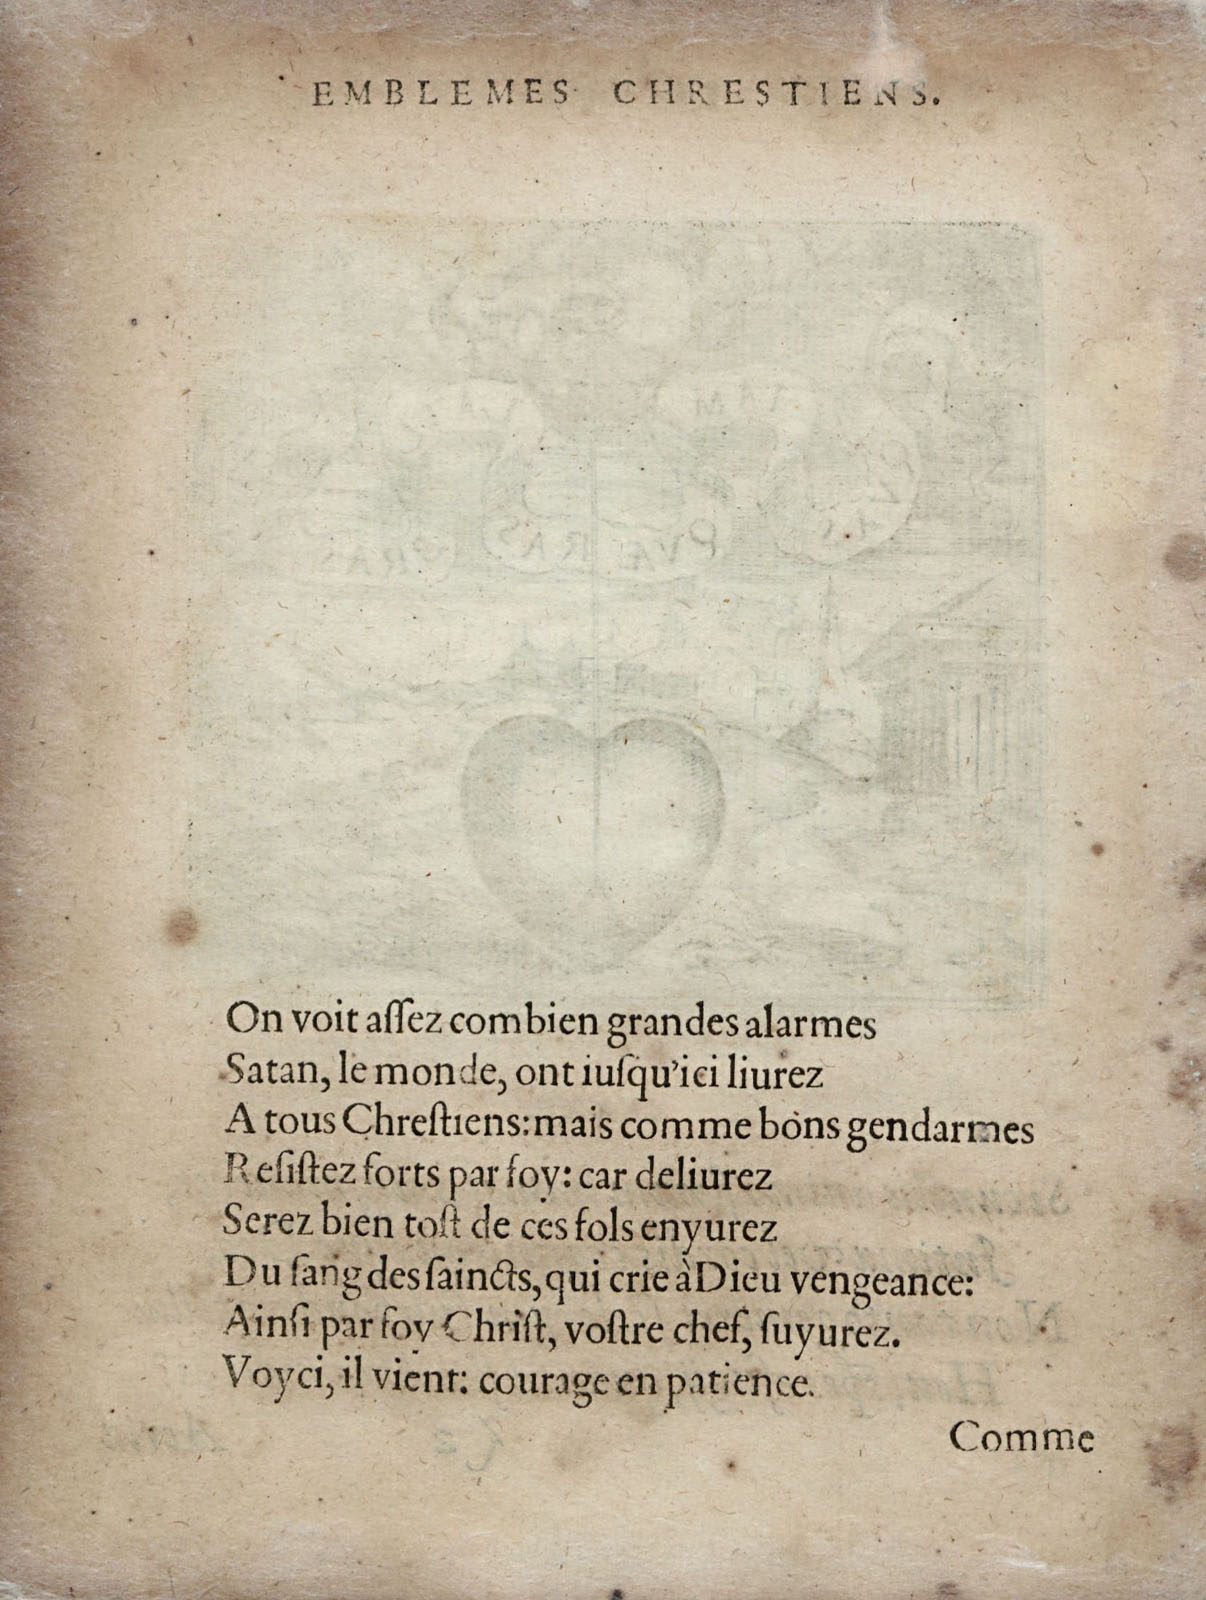 EMBLEMES CHRESTIENS.
On voit aſſez combien grandes alarmes
Satan, le monde, ont iuſqu'ici liurez
A tous Chreſtiens: mais comme bons gendarmes
Reſiſtez forts par foy: car deliurez
Serez bien toſt de ces fols enyurez
Du ſang des ſaincts, qui crie à Dieu vengeance:
Ainſi par foy Chriſt, voſtre chef, ſuyurez.
Voyci, il vient: courage en patience.
Comme